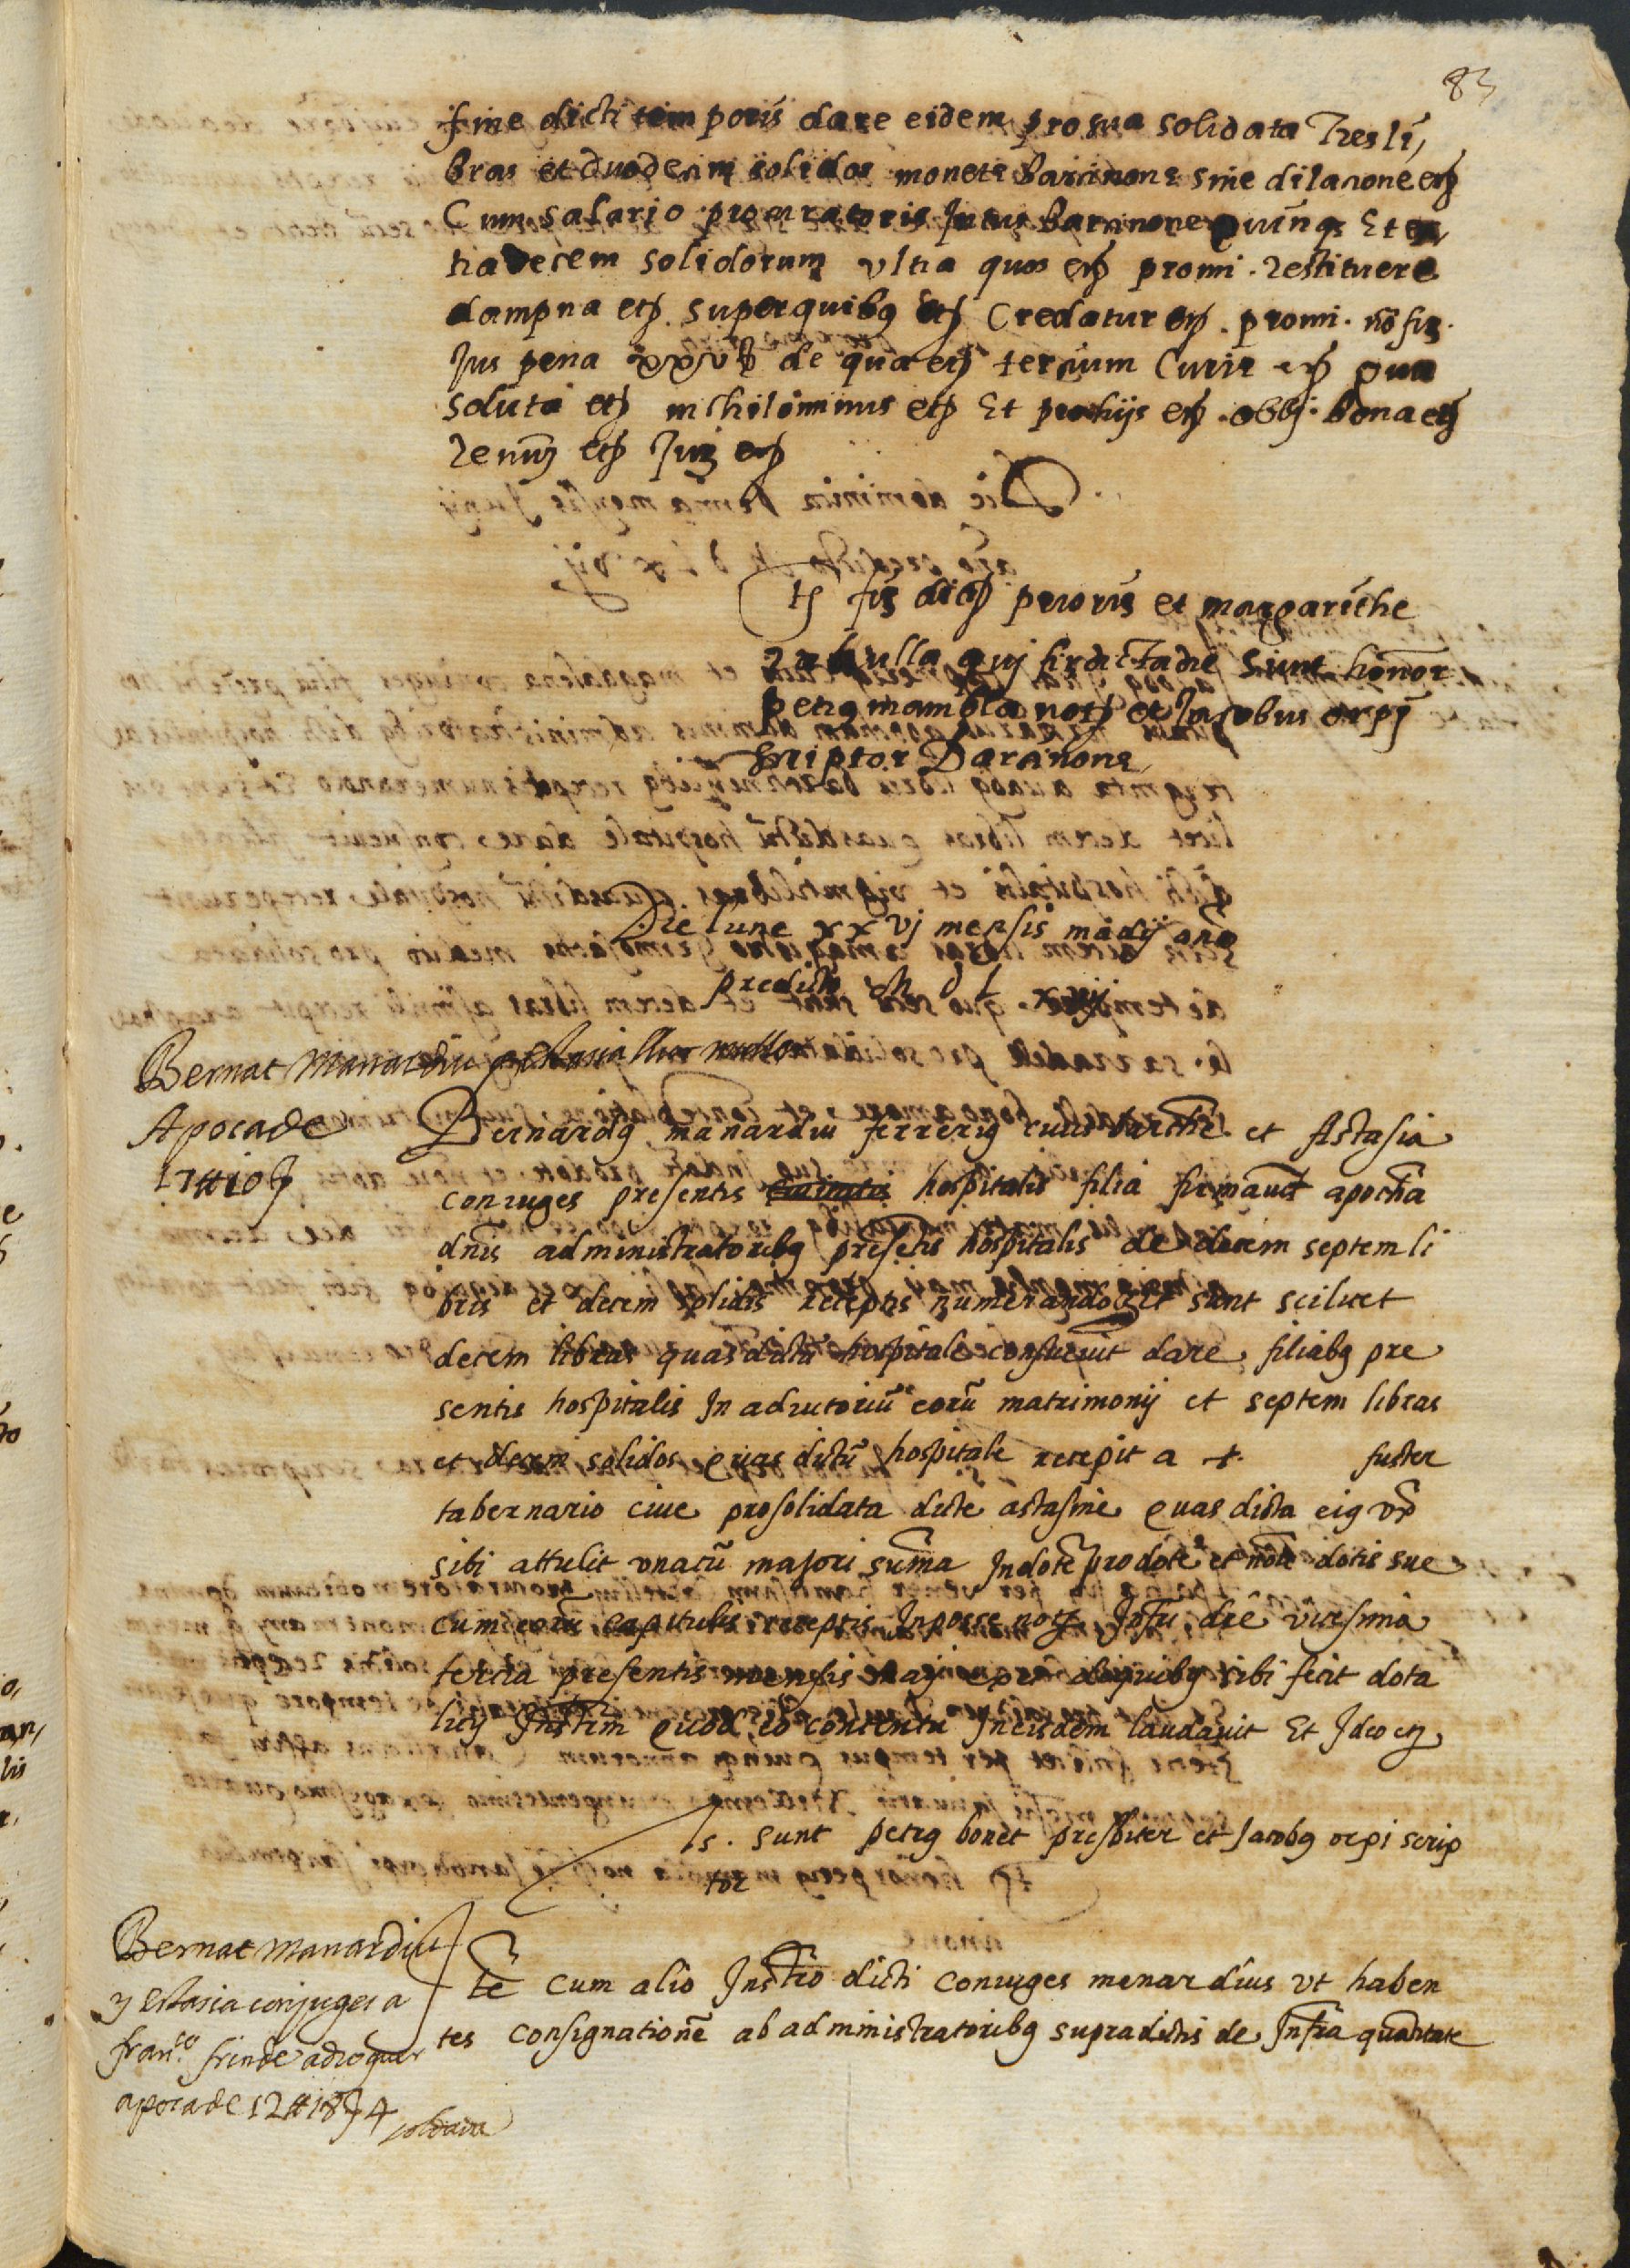 83
fine dicti temporis dare eidem pro sua solidata Tres li
bras et duodecim solidos monete Barcinone sine dilacione etc
Cum salario procuratoris Intus Barcinone quinqs Et ex
tra decem solidorum ultra quos etc promi. restituere
dampna etc. super quibus etc Credatur etc. promi. no fir.
Jus pena xxv de qua etc tercium Curie etc qua
soluta etc nichilominus etc Et pro hijs etc. obbj. bona etc
Renun etc Jur etc
ts fir dict prioris et margarithe
qui fir dicta die sunt honor
petrus mambla nots et Jacobus orpj
scriptor Barcinone
Die lune xxvj mensis madij anno
predicto M D L xvij
Bernat Manardiu
Apoca de
17 ℔ 10 s
Bernardus manardiu ferrerius civis barche et Astasia
coniuges presentis hospitalis filia firmaut apocha
dnis administratoribus presetis hospitalis de decem septem li
bris et decem solidis receptis numerando Et sunt scilicet
decem libras quas dictu hospitale consuevit dare filiabus pre
sentis hospitalis In adiutoriu eoru matrimonij et septem libras
et decem solidos quas dictu hospitale recepit a + fuster
tabernario cive pro solidata dicte astasine quas dicta eius uxo
sibi attulit unacu majori suma In dote pro dote et noie dotis sue
cum eoru capitulis receptis In posse nots Infri die vicesima
tercia presentis mensis maij pro quibus sibi fecit dota
licij Instrum quod, eo contentu In eisdem laudavit Et Ideo etc
ts. sunt petrus bonet presbiter et Jacobus orpi scrip
tor
Bernat Manardiu
y Estasia conjuges a
fran.co frinde adroguer
apoca de 12 ℔ 18 s 4
soldada
Ite cum alio Instro dicti coniuges menardius ut haben
tes consignatione ab administratoribus supradictis de Infra quantitate